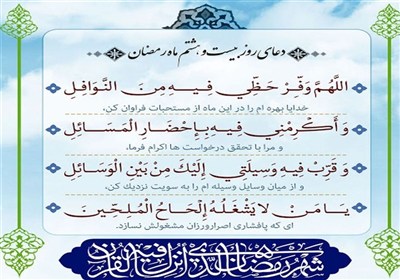 دعای روز بیست و هشتم ماه رمضان
اللَّهُمَّ وَفِّرْ حَظِّي فِيهِ مِنَ النَّوَافِلِ
خدایا بهره ام را در این ماه از مستحبات فراوان کن،
وَ أَكْرِمْنِي فِيهِ بِإِحْضَارِ الْمَسَائِلِ
و مرا با تحقق درخواست ها اکرام فرما،
وَ قَرِّبْ فِيهِ وَسِيلَتِي إِلَيْكَ مِنْ بَيْنِ الْوَسَائِلِ
و از میان وسایل وسیله ام را به سویت نزدیک کن،
يَا مَنْ لَا يَشْغَلُهُ إِلْحَاحُ الْمُلِحِّينَ
ای که پافشاری اصرارورزان مشغولش نسازد.
شهر رمضان الذي انزل فيه القرآن